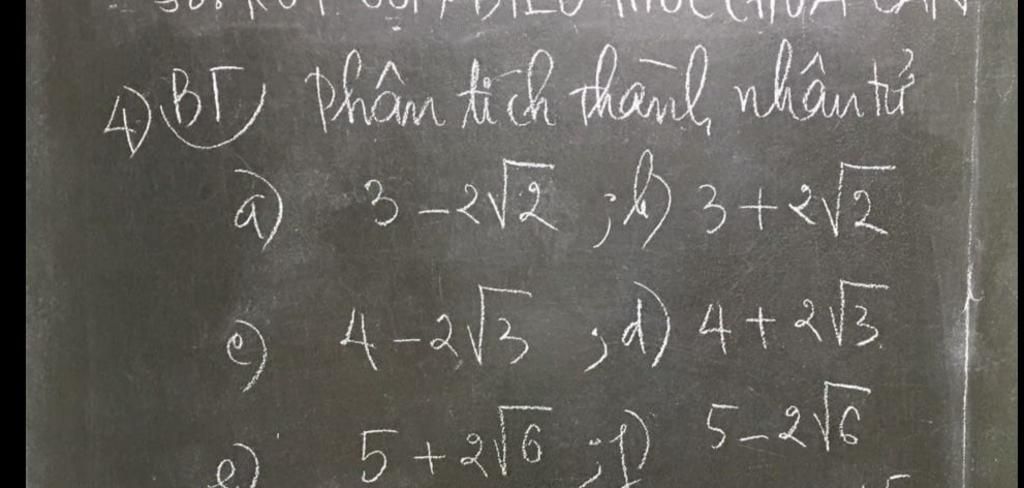 4) BT Phân tích thành nhân tử
a) 3 - 2√2 ; b) 3 + 2√2
c) 4 - 2√3 ; d) 4 + 2√3
e) 5 + 2√6 ; f) 5 - 2√6